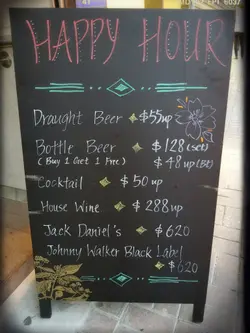 HAPPY HOUR
Draught Beer $55up
Bottle Beer $128 (set)
(Buy 1 Get 1 Free) $48up (Btl)
Cocktail $50 up
House Wine $288up
Jack Daniel's $620
Johnny Walker Black Label
$620